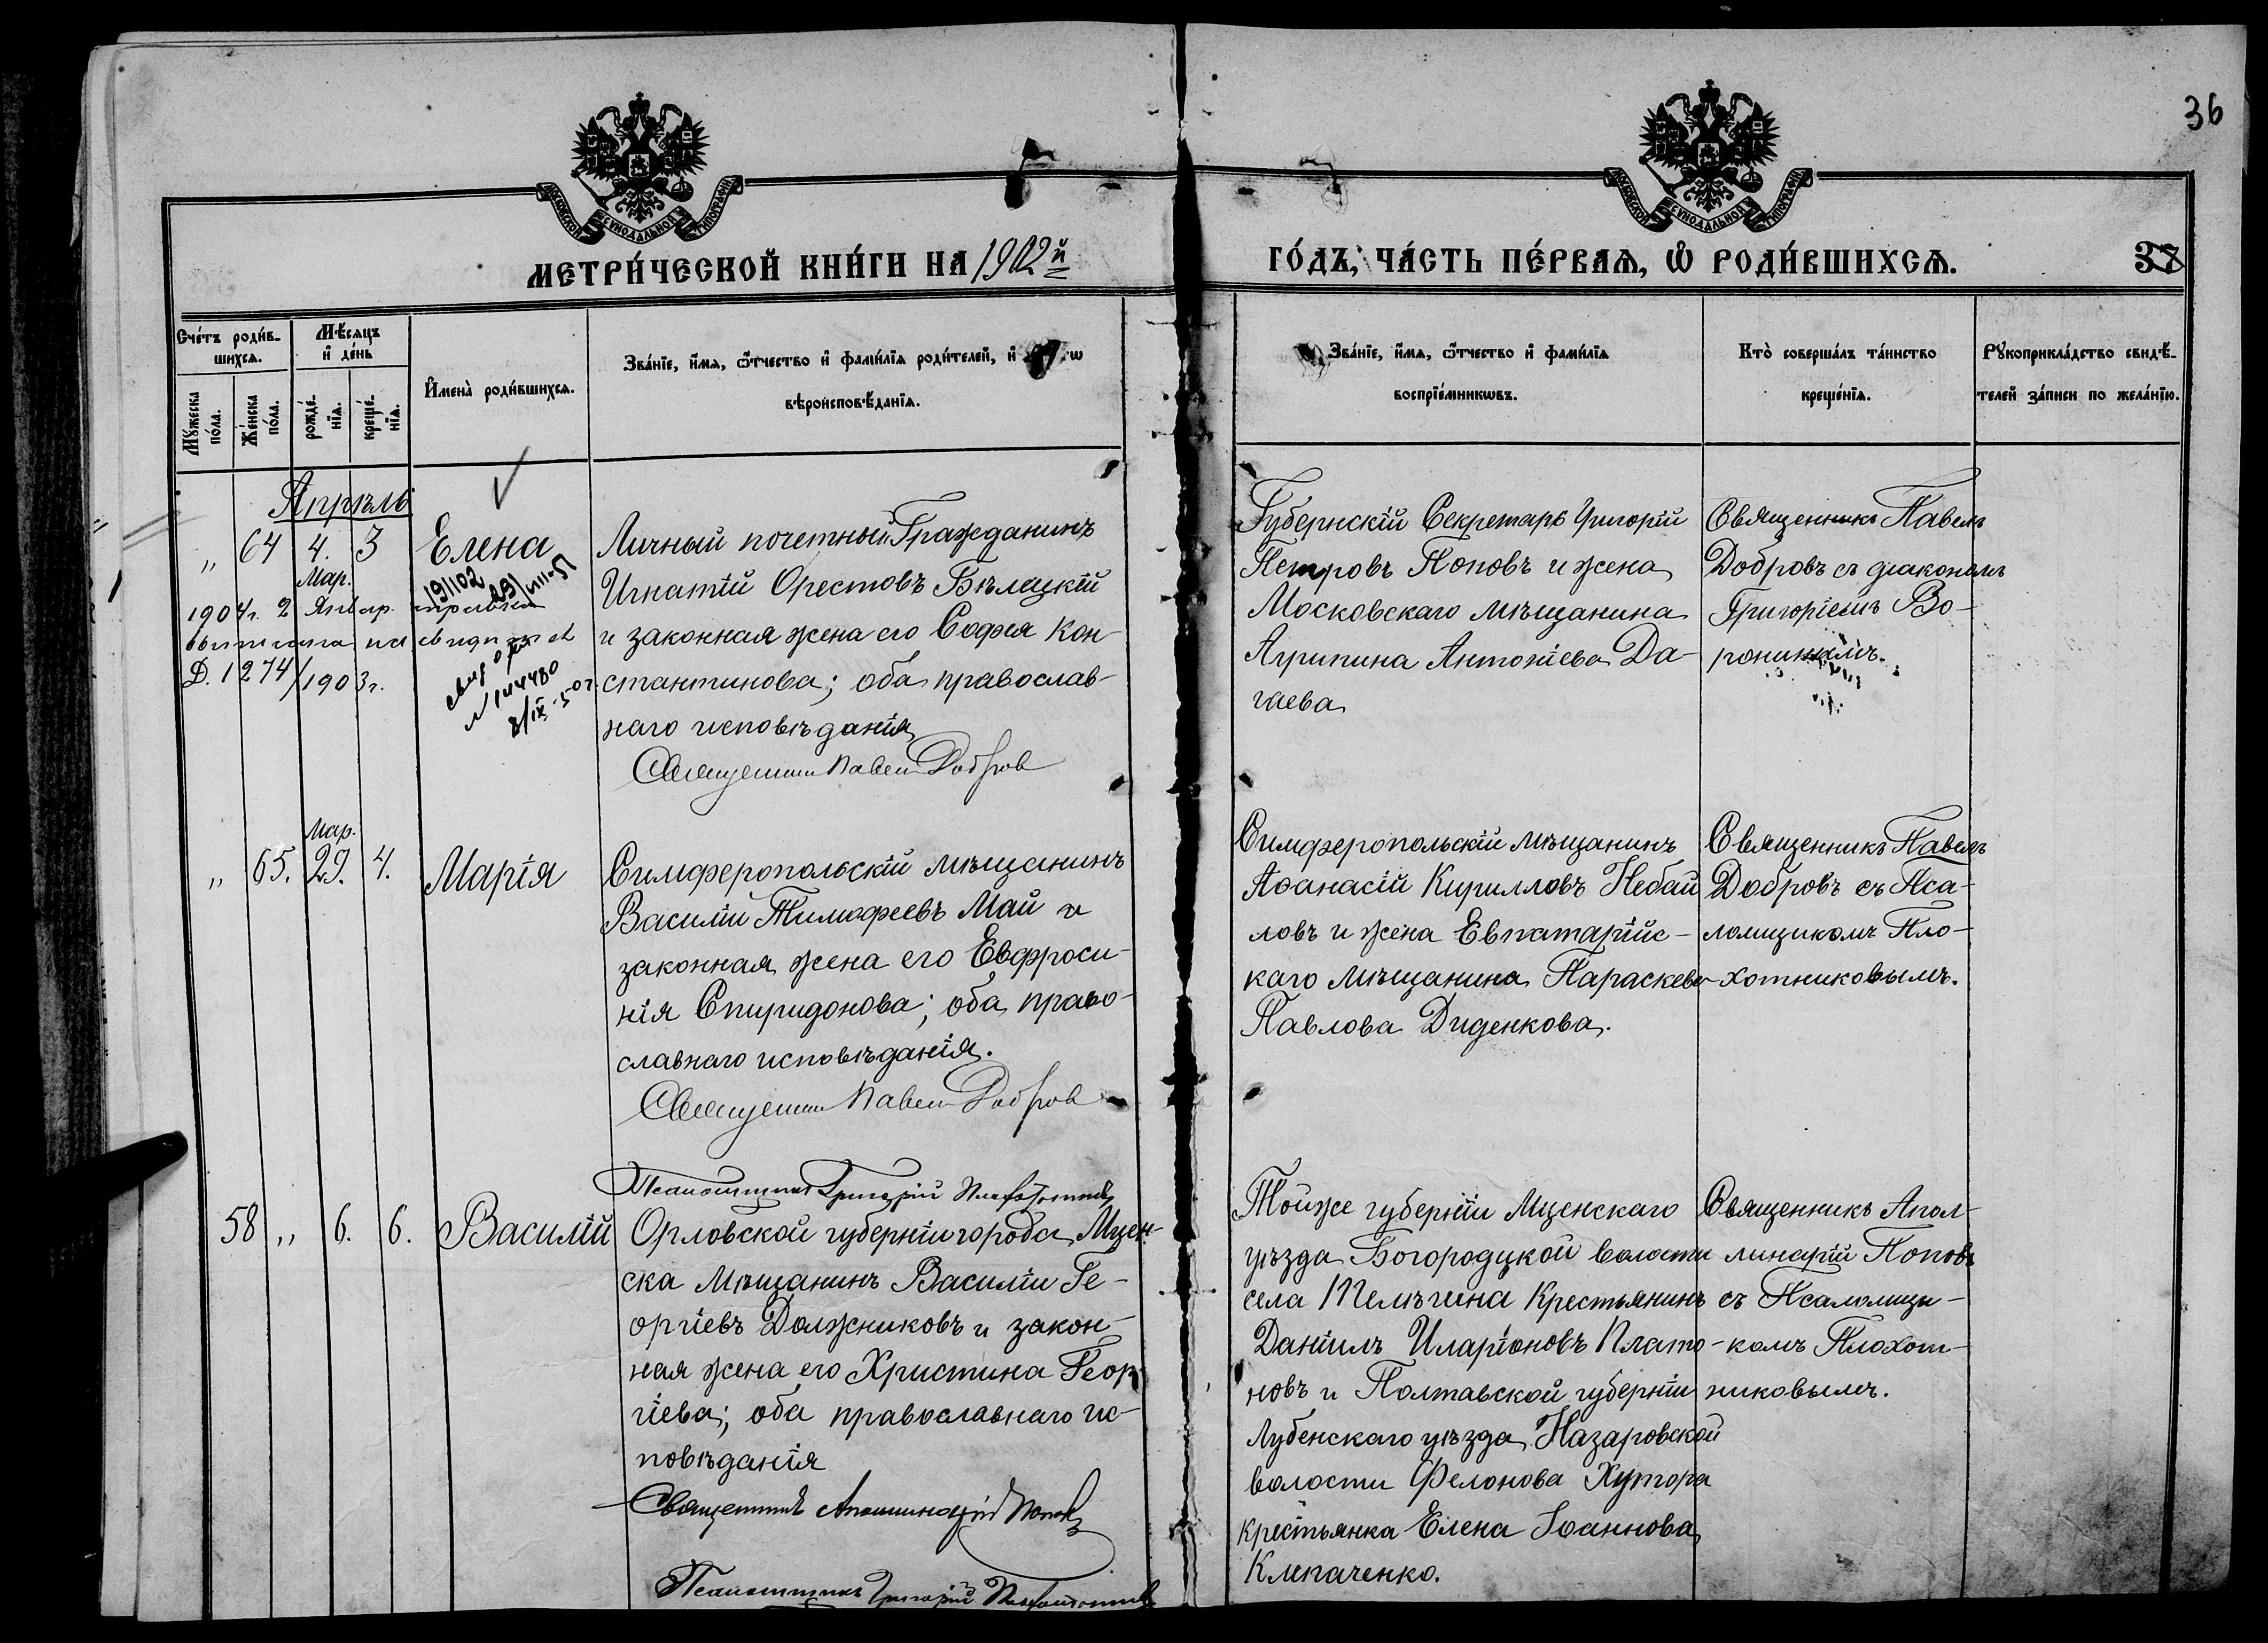 36
МОСКОВСКОЙ СУНОДАЛЬНОЙ ТИПОГРАФІИ
МОСКОВСКОЙ СУНОДАЛЬНОЙ ТИПОГРАФІИ
МЕТРИ́ЧЕСКОЙ КНИ́ГИ НА 1902й
ГО́ДЪ, ЧА́СТЬ ПЕ́РВАѦ, Ѡ РОДИ́ВШИХСѦ.
37
Сче́тъ роди́в-
шихсѧ.
Мꙋ́жеска по́ла.
Же́нска по́ла.
Мѣ́сѧцъ и де́нь
рожде́-нїѧ.
креще́-нїѧ.
Имена̀ роди́вшихсѧ.
Зва́нїе, и́мѧ, ѻ́тчество и фами́лїѧ роди́телей, и
вѣроисповѣ́данїѧ.
Зва́нїе, и́мѧ, ѻ́тчество и фами́лїѧ
воспрїе́мникѡвъ.
Кто̀ соверша́лъ та́инство
креще́нїѧ.
Рꙋкоприкла́дство свидѣ́-
телей за́писи по жела́нїю.
Апрѣль
„ 64 4. Мар. 3 Елена
1904г. 2 Январ.
Д. 1274/1903г.
191102
N 144480
8/IX-50г.
Личный почетный Гражданинъ
Игнатій Орестовъ Бѣлецкій
и законная жена его Софія Кон-
стантинова; оба православ-
наго исповѣданія
Священник Павел Добров
Губернскій Секретарь Григорій
Петровъ Поповъ и жена
Московскаго мѣщанина
Агрипина Антоніева Да-
гаева
Священникъ Павелъ
Добровъ съ діакономъ
Григоріемъ Во-
рониным.
„ 65. Мар. 29. 4. Марія
Симферопольскій мѣщанинъ
Василій Тимофеевъ Май и
законная жена его Евфроси-
нія Спиридонова; оба право-
славнаго исповѣданія.
Священник Павел Добров
Псаломщикъ Григорій Плохотников
Симферопольскій мѣщанинъ
Афанасій Кирилловъ Небай
ловъ и жена Евпаторійс-
каго мѣщанина Параскева
Павлова Диденкова.
Священникъ Павелъ
Добровъ съ Пса-
ломщикомъ Пло-
хотниковымъ.
58 „ 6. 6. Василій
Орловской губерніи города Мцен-
ска мѣщанинъ Василій Ге-
оргіевъ Должниковъ и закон-
ная жена его Христина Геор
гіева; оба православнаго ис-
повѣданія
Священникъ Аполлинарій Попов
Псаломщикъ Григорій Плохотников
Тойже губерніи Мценскаго
уѣзда Богородцкой волости
села Крестьянинъ
Даніилъ Иларіоновъ Плато-
новъ и Полтавской губерніи
Лубенскаго уѣзда Назаровской
волости Фелонова Хутора
крестьянка Елена Іоаннова
Клепаченко.
Священникъ Апол-
линарій Поповъ
съ Псаломщи-
комъ Плохот-
никовымъ.